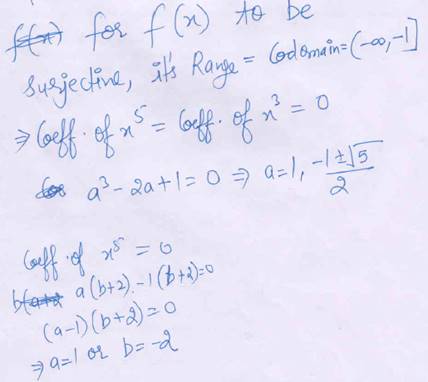 for f(x) to be
surjective, it's Range = Codomain=(-∞,-1]
⇒ Coeff. of x⁵ = Coeff. of x³ = 0
a³-2a+1=0 ⇒ a=1, (-1±√5)/2
Coeff. of x⁵ = 0
a(b+2)-1(b+2)=0
(a-1)(b+2)=0
⇒ a=1 or b=-2